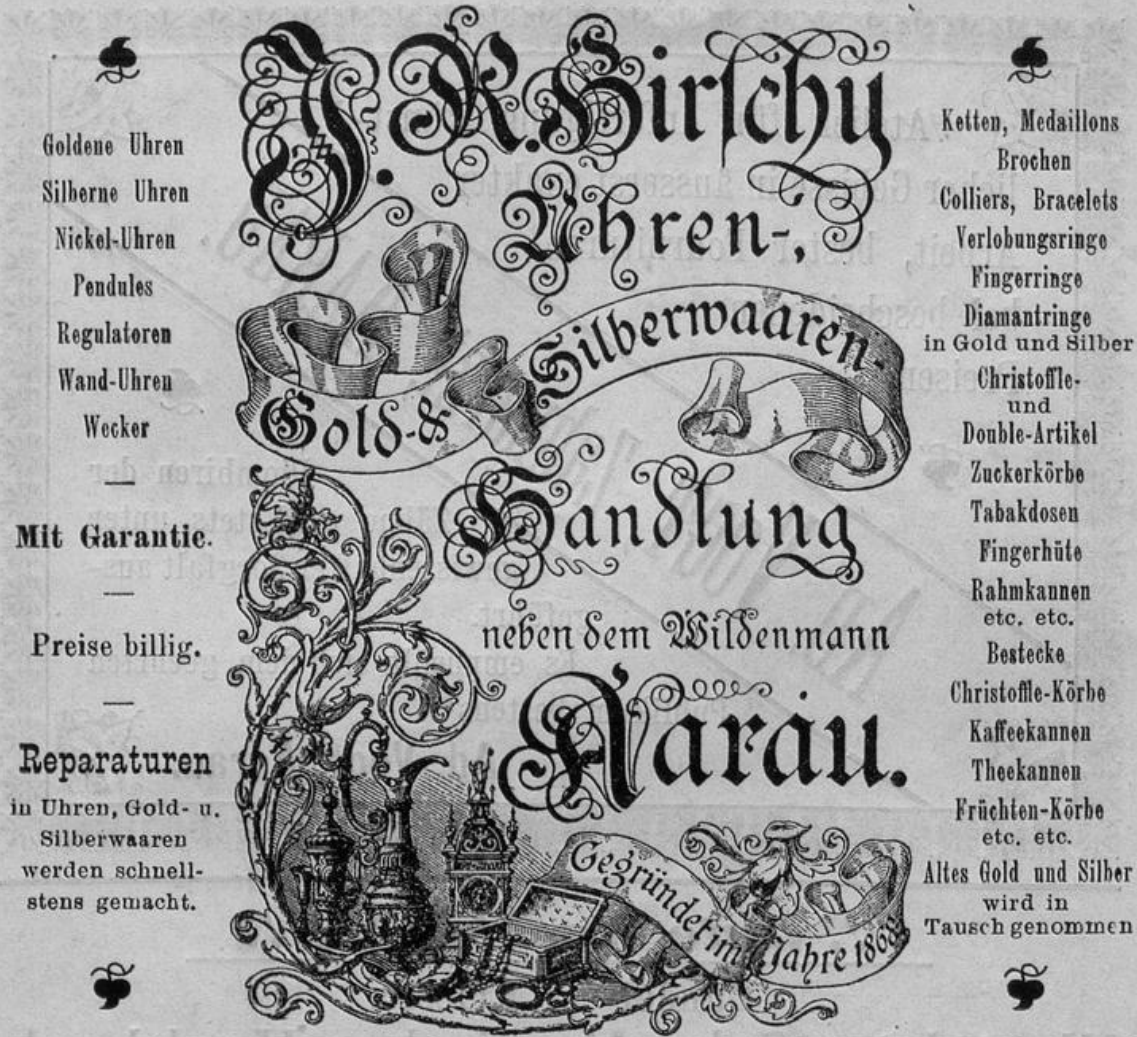 Goldene Uhren
Silberne Uhren
Nickel-Uhren
Pendules
Regulatoren
Wand-Uhren
Wecker
Mit Garantie.
Preise billig.
Reparaturen
in Uhren, Gold- u.
Silberwaaren
werden schnell-
stens gemacht.
J. R. Hirschy
Uhren-,
Gold- & Silberwaaren-
Handlung
neben dem Wildenmann
Aarau.
Gegründet im Jahre 1868
Ketten, Medaillons
Brochen
Colliers, Bracelets
Verlobungsringe
Fingerringe
Diamantringe
in Gold und Silber
Christoffle-
und
Double-Artikel
Zuckerkörbe
Tabakdosen
Fingerhüte
Rahmkannen
etc. etc.
Bestecke
Christoffle-Körbe
Kaffeekannen
Theekannen
Früchten-Körbe
etc. etc.
Altes Gold und Silber
wird in
Tausch genommen